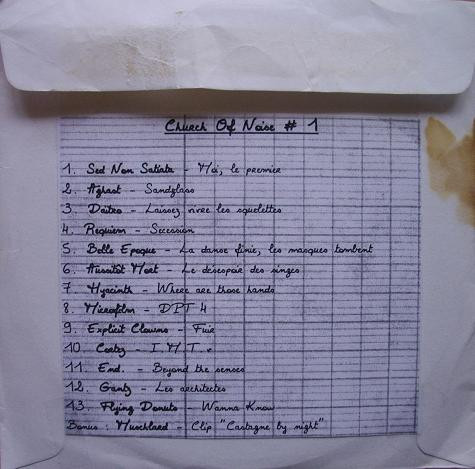 Church Of Noise # 1
1. Sed Non Satiata - Moi, le premier
2. Aghast - Sandglass
3. Daïtro - Laissez vivre les squelettes
4. Requiem - Secession
5. Belle Epoque - La danse finie, les masques tombent
6. Aussitôt Mort - Le désespoir des singes
7. Hyacinth - Where are those hands
8. Microfilm - DPT 4
9. Explicit Clowns - Fuir
10. Cortez - I.M.T.
11. End. - Beyond the senses
12. Gantz - Les architectes
13. Flying Donuts - Wanna Know
Bonus : Muschland - Clip "Castagne by night"